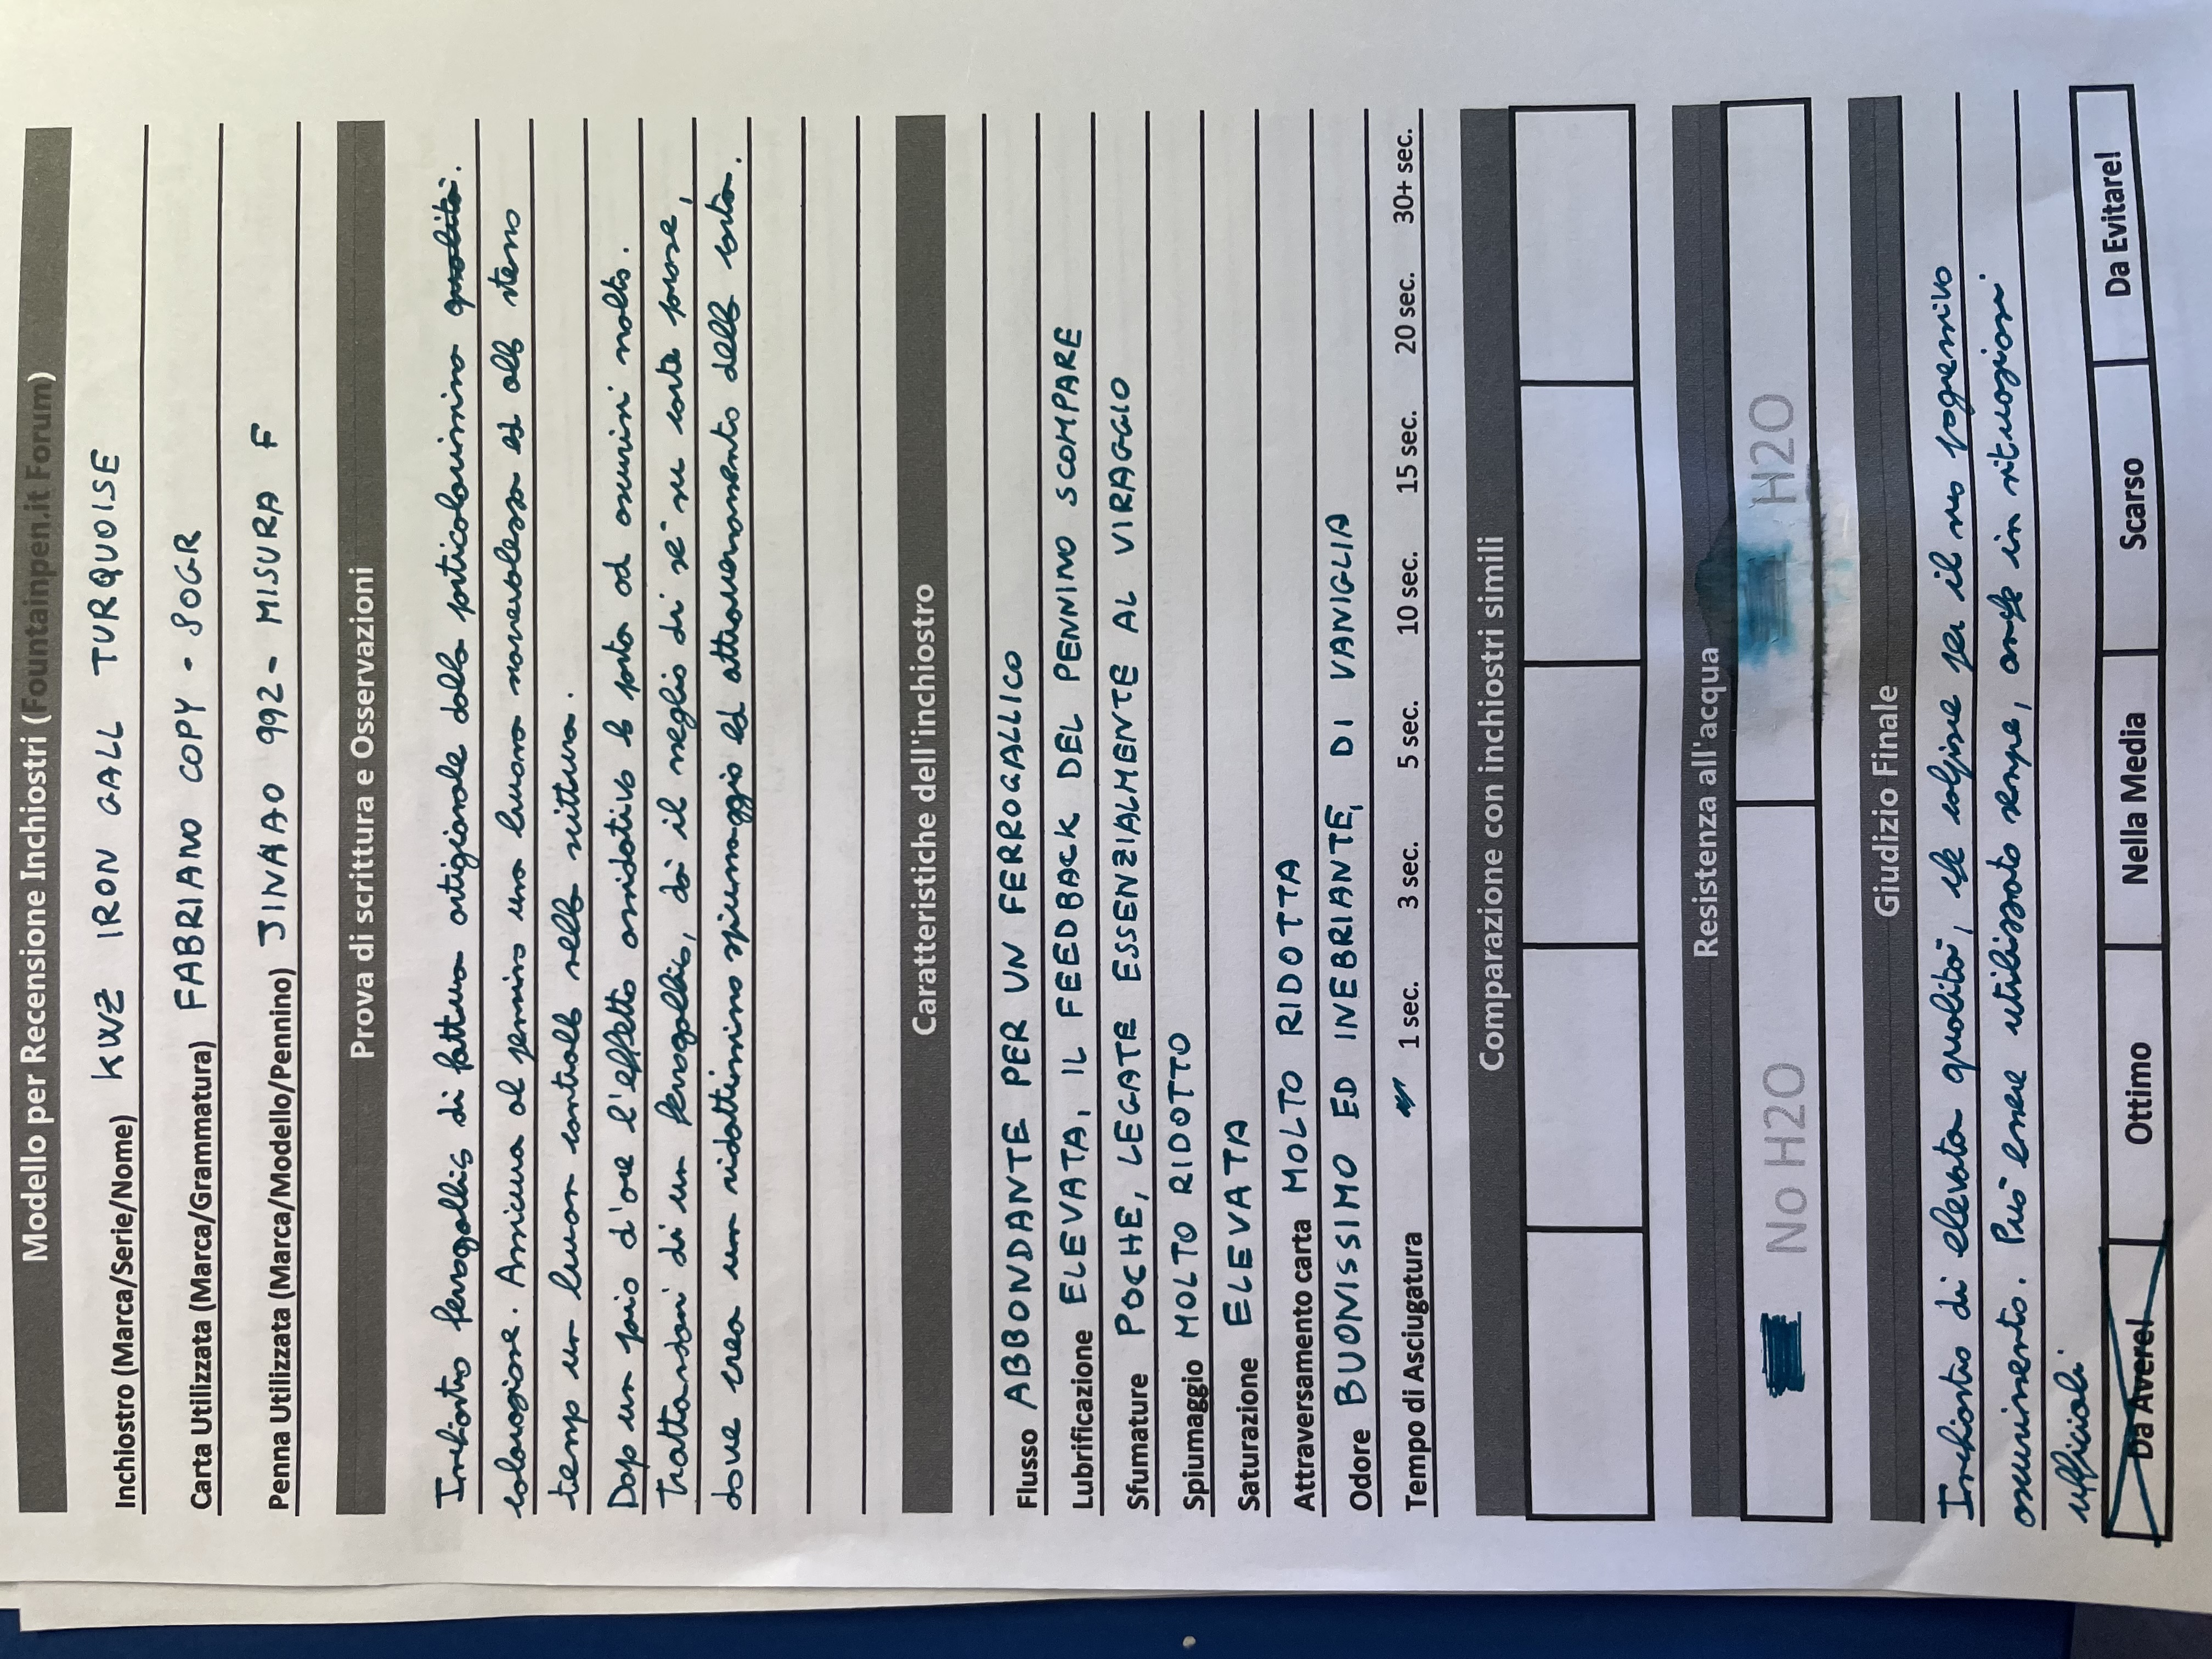 Modello per Recensione Inchiostri (Fountainpen.it Forum)
Inchiostro (Marca/Serie/Nome) KWZ IRON GALL TURQUOISE
Carta Utilizzata (Marca/Grammatura) FABRIANO COPY - 80GR
Penna Utilizzata (Marca/Modello/Pennino) JINAO 992 - MISURA F
Prova di scrittura e Osservazioni
Inchiostro ferrogallico di fattura artigianale dalla particolarissima qualità.
colorazione. Assicura al pennino una buona scorrevolezza ed allo stesso
tempo un buon controllo nella scrittura.
Dopo un paio d'ore l'effetto ossidativo lo porta ad scurirsi molto.
Trattandosi di un ferrogallico, dà il meglio di sé su carte porose,
dove crea un ridottissimo spiumaggio ed attraversamento della carta.
Caratteristiche dell'inchiostro
Flusso ABBONDANTE PER UN FERROGALLICO
Lubrificazione ELEVATA, IL FEEDBACK DEL PENNINO SCOMPARE
Sfumature POCHE, LEGATE ESSENZIALMENTE AL VIRAGGIO
Spiumaggio MOLTO RIDOTTO
Saturazione ELEVATA
Attraversamento carta MOLTO RIDOTTA
Odore BUONISSIMO ED INEBRIANTE, DI VANIGLIA
Tempo di Asciugatura 1 sec. 3 sec. 5 sec. 10 sec. 15 sec. 20 sec. 30+ sec.
Comparazione con inchiostri simili
Resistenza all'acqua
No H2O H2O
Giudizio Finale
Inchiostro di elevata qualità, che colpisce per il suo progressivo
scurimento. Può essere utilizzato sempre, anche in situazioni
ufficiali
Da Avere! Ottimo Nella Media Scarso Da Evitare!